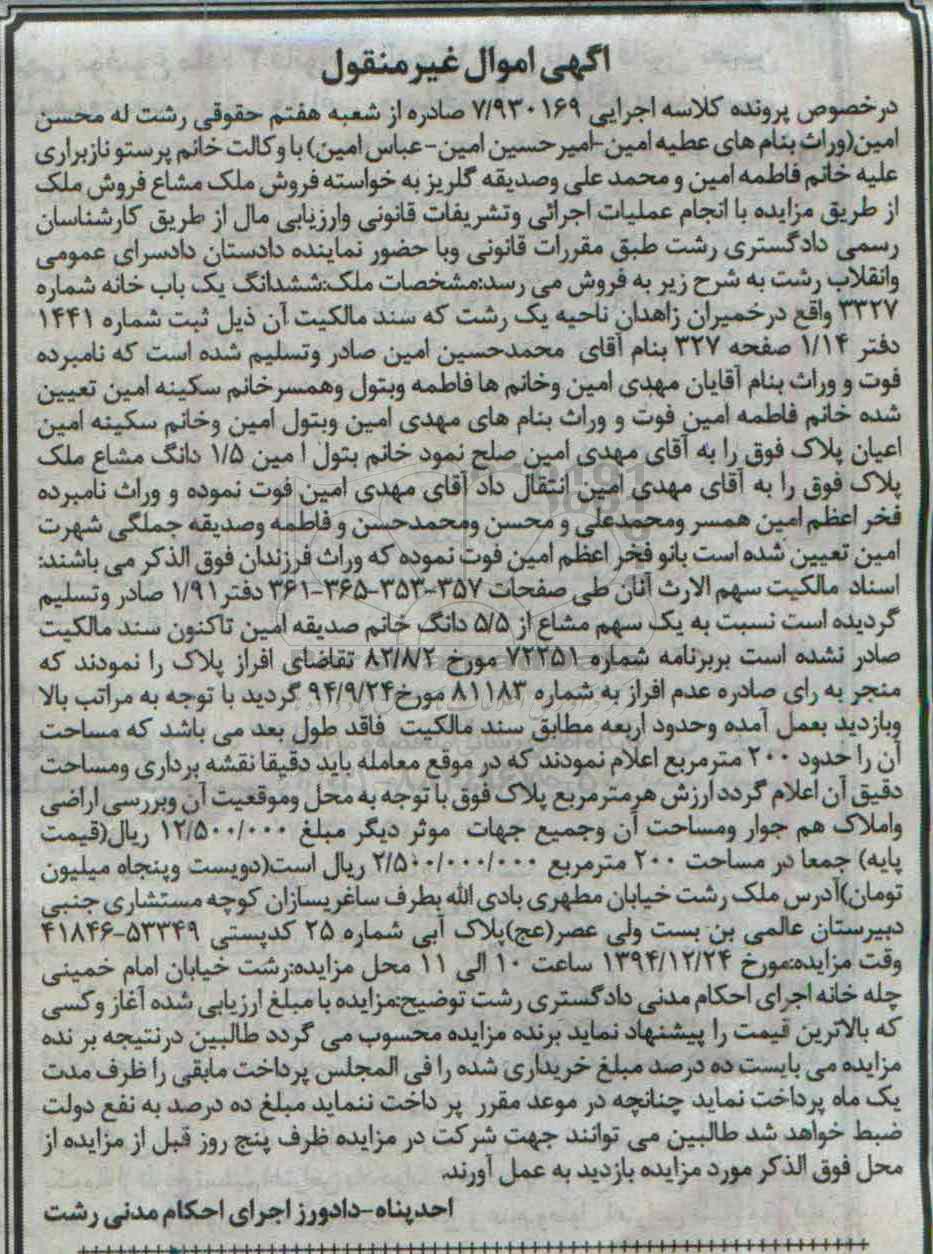 اگهی اموال غیرمنقول
درخصوص پرونده کلاسه اجرایی ۷/۹۳۰۱۶۹ صادره از شعبه هفتم حقوقی رشت له محسن
امین(وراث بنام های عطیه امین-امیرحسین امین-عباس امین) با وکالت خانم پرستو نازبراری
علیه خانم فاطمه امین و محمد علی وصدیقه گلریز به خواسته فروش ملک مشاع فروش ملک
از طریق مزایده با انجام عملیات اجرائی وتشریفات قانونی وارزیابی مال از طریق کارشناسان
رسمی دادگستری رشت طبق مقررات قانونی وبا حضور نماینده دادستان دادسرای عمومی
وانقلاب رشت به شرح زیر به فروش می رسد:مشخصات ملک:ششدانگ یک باب خانه شماره
۳۳۲۷ واقع درخمیران زاهدان ناحیه یک رشت که سند مالکیت آن ذیل ثبت شماره ۱۴۴۱
دفتر ۱/۱۴ صفحه ۳۲۷ بنام آقای محمدحسین امین صادر وتسلیم شده است که نامبرده
فوت و وراث بنام آقایان مهدی امین وخانم ها فاطمه وبتول وهمسرخانم سکینه امین تعیین
شده خانم فاطمه امین فوت و وراث بنام های مهدی امین وبتول امین وخانم سکینه امین
اعیان پلاک فوق را به آقای مهدی امین صلح نمود خانم بتول ا مین ۱/۵ دانگ مشاع ملک
پلاک فوق را به آقای مهدی امین انتقال داد آقای مهدی امین فوت نموده و وراث نامبرده
فخر اعظم امین همسر ومحمدعلی و محسن ومحمدحسن و فاطمه وصدیقه جملگی شهرت
امین تعیین شده است بانو فخر اعظم امین فوت نموده که وراث فرزندان فوق الذکر می باشند:
اسناد مالکیت سهم الارث آنان طی صفحات ۳۵۷-۳۵۳-۳۶۵-۳۶۱ دفتر ۱/۹۱ صادر وتسلیم
گردیده است نسبت به یک سهم مشاع از ۵/۵ دانگ خانم صدیقه امین تاکنون سند مالکیت
صادر نشده است بربرنامه شماره ۷۲۲۵۱ مورخ ۸۲/۸/۲ تقاضای افراز پلاک را نمودند که
منجر به رای صادره عدم افراز به شماره ۸۱۱۸۳ مورخ۹۴/۹/۲۴ گردید با توجه به مراتب بالا
وبازدید بعمل آمده وحدود اربعه مطابق سند مالکیت فاقد طول بعد می باشد که مساحت
آن را حدود ۲۰۰ مترمربع اعلام نمودند که در موقع معامله باید دقیقا نقشه برداری ومساحت
دقیق آن اعلام گردد ارزش هرمترمربع پلاک فوق با توجه به محل وموقعیت آن وبررسی اراضی
واملاک هم جوار ومساحت آن وجمیع جهات موثر دیگر مبلغ ۱۲/۵۰۰/۰۰۰ ریال(قیمت
پایه) جمعا در مساحت ۲۰۰ مترمربع ۲/۵۰۰/۰۰۰/۰۰۰ ریال است(دویست وپنجاه میلیون
تومان)آدرس ملک رشت خیابان مطهری بادی الله بطرف ساغریسازان کوچه مستشاری جنبی
دبیرستان عالمی بن بست ولی عصر(عج)پلاک آبی شماره ۲۵ کدپستی ۵۳۳۴۹-۴۱۸۴۶
وقت مزایده:مورخ ۱۳۹۴/۱۲/۲۴ ساعت ۱۰ الی ۱۱ محل مزایده:رشت خیابان امام خمینی
چله خانه اجرای احکام مدنی دادگستری رشت توضیح:مزایده با مبلغ ارزیابی شده آغاز وکسی
که بالاترین قیمت را پیشنهاد نماید برنده مزایده محسوب می گردد طالبین درنتیجه بر نده
مزایده می بایست ده درصد مبلغ خریداری شده را فی المجلس پرداخت مابقی را ظرف مدت
یک ماه پرداخت نماید چنانچه در موعد مقرر پر داخت ننماید مبلغ ده درصد به نفع دولت
ضبط خواهد شد طالبین می توانند جهت شرکت در مزایده ظرف پنج روز قبل از مزایده از
محل فوق الذکر مورد مزایده بازدید به عمل آورند.
احدپناه-دادورز اجرای احکام مدنی رشت